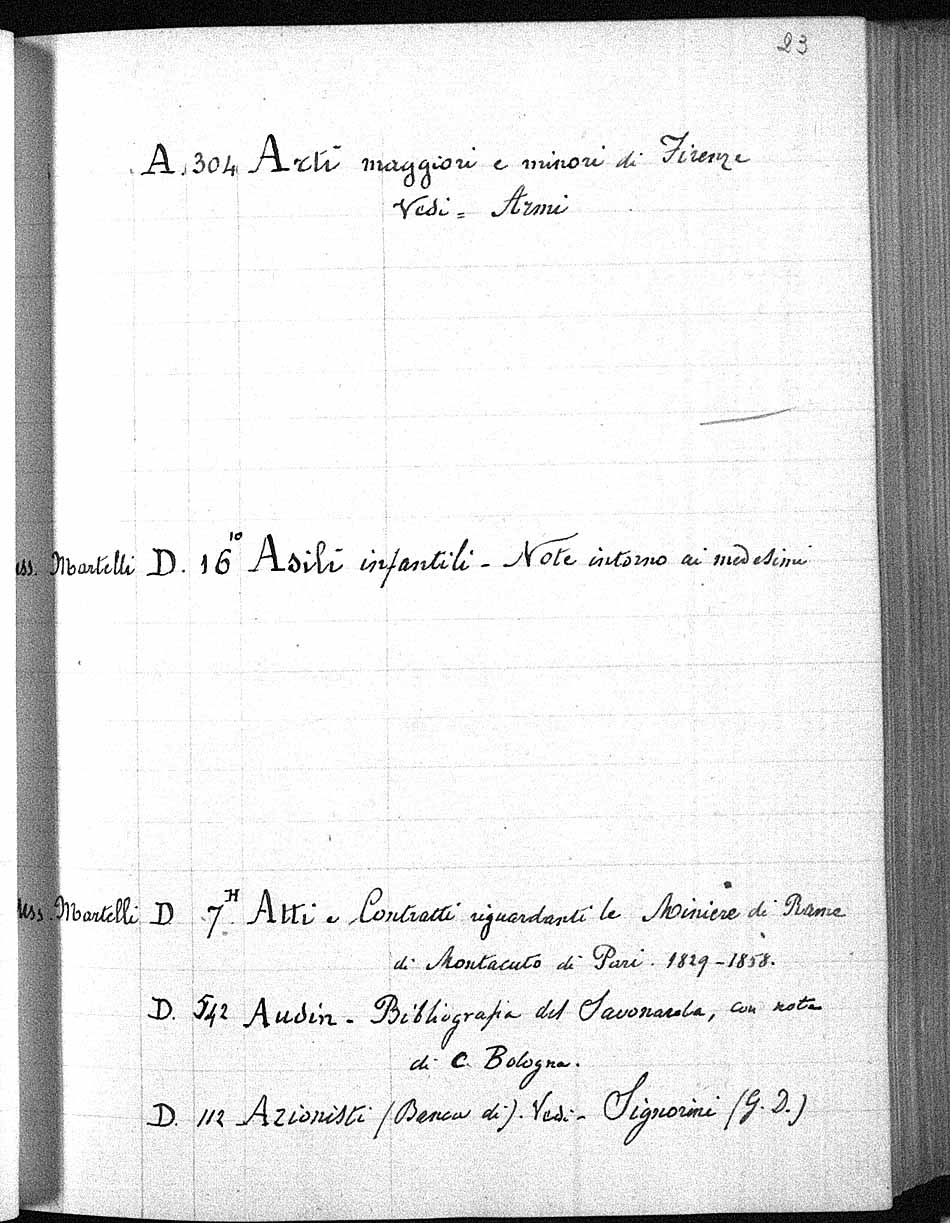 23
A. 304 Arti maggiori e minori di Firenze
Vedi = Armi
Mss. Martelli D. 16 10 Asili infantili - Note intorno ai medesimi
Mss. Martelli D 7 H Atti e Contratti riguardanti le Miniere di Rame
di Montacuto di Pari. 1829-1858.
D. 542 Audin - Bibliografia del Savonarola, con nota
di C. Bologna.
D. 112 Azionisti (Banca di). Vedi - Signorini (G. D.)